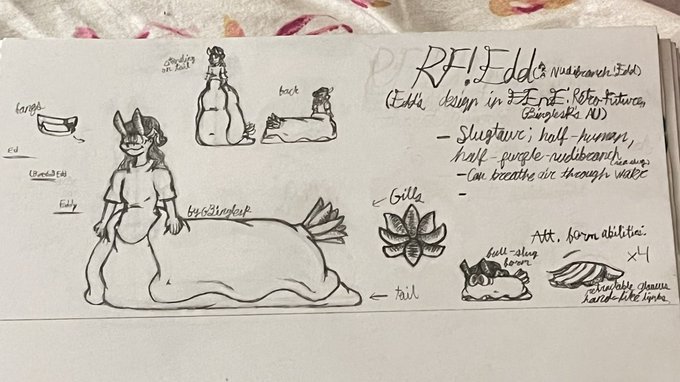 RF!Edd (A.K.A. Nudibranch!Edd)
(Edd's design in EEnE: Retro-Futures,
GBinglesR's AU)
- Slugtaur; half-human,
half-purple-nudibranch (sea slug)
- Can breathe air through water
-
standing
on tail
back
fangs
Ed
Eddy
by GBinglesR
← Gills
← tail
Alt. form abilities:
full-slug
form
x4
retractable glaucus
hand-like limbs